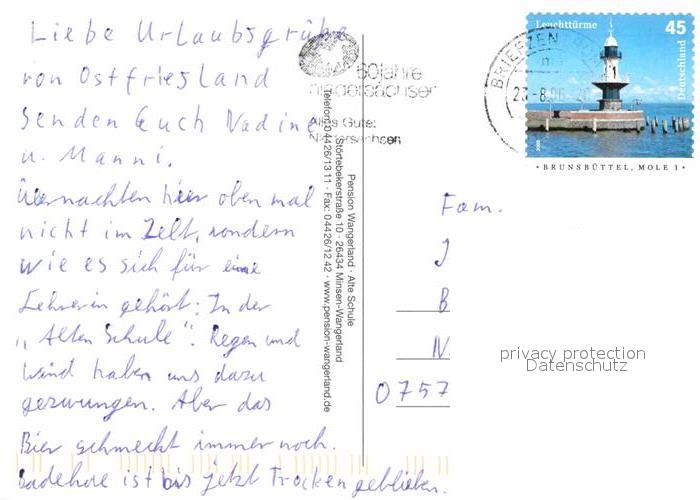 Liebe Urlaubsgrüße
von Ostfriesland
senden Euch Nadine
u. Manni.
Übernachten hier oben mal
nicht im Zelt, sondern
wie es sich für eine
Lehrerin gehört: In der
„Alten Schule". Regen und
Wind haben uns dazu
gezwungen. Aber das
Bier schmeckt immer noch.
Badehose ist bis jetzt trocken geblieben.
60 Jahre
Niedersachsen
Alles Gute:
Niedersachsen
Pension Wangerland · Alte Schule
Störtebekerstraße 10 · 26434 Minsen-Wangerland
Telefon: 04426/1311 · Fax: 04426/1242 · www.pension-wangerland.de
BRIEFZEN
23-8.06-20
Leuchttürme
45
Deutschland
· BRUNSBÜTTEL, MOLE 1 ·
Fam.
J
B
N
0757
privacy protection
Datenschutz